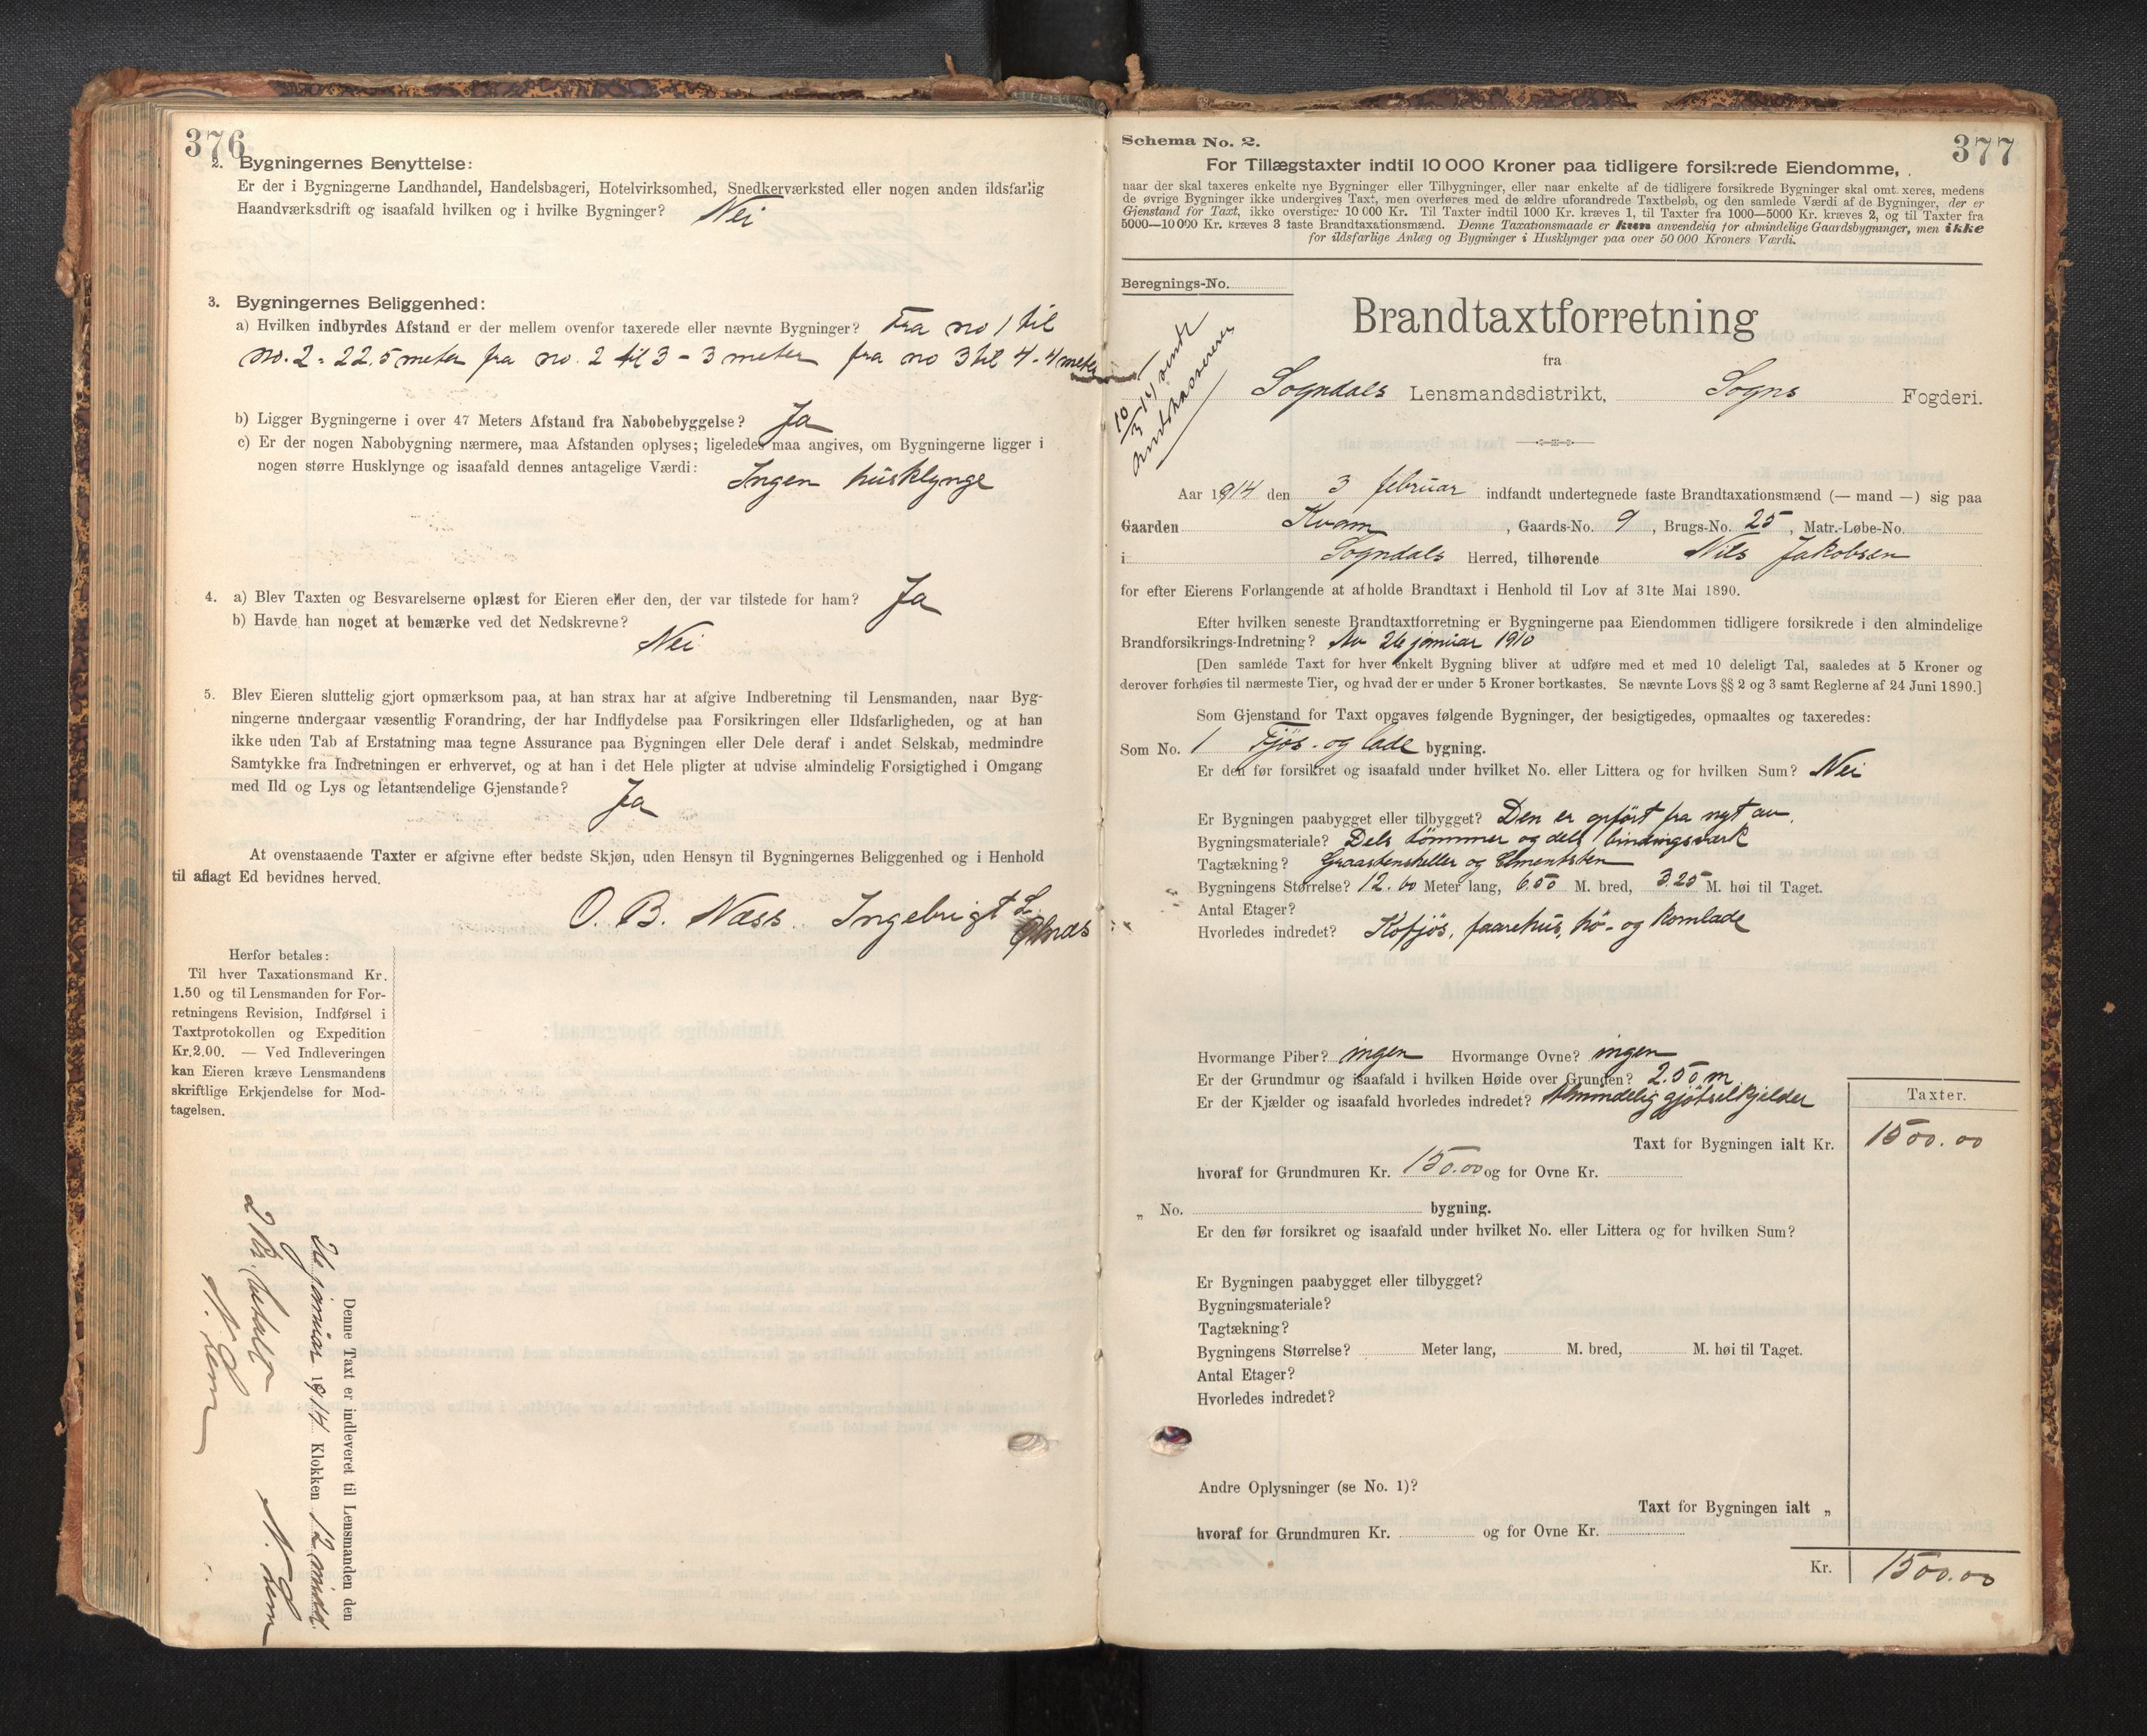 376
2. Bygningernes Benyttelse:
Er der i Bygningerne Landhandel, Handelsbageri, Hotelvirksomhed, Snedkerværksted eller nogen anden ildsfarlig
Haandværksdrift og isaafald hvilken og i hvilke Bygninger? Nei
3. Bygningernes Beliggenhed:
a) Hvilken indbyrdes Afstand er der mellem ovenfor taxerede eller nævnte Bygninger? Fra no 1 til
no. 2 = 22,5 meter fra no. 2 til 3 - 3 meter fra no 3 til 4 - 4 meter
b) Ligger Bygningerne i over 47 Meters Afstand fra Nabobebyggelse? Ja
c) Er der nogen Nabobygning nærmere, maa Afstanden oplyses; ligeledes maa angives, om Bygningerne ligger i
nogen større Husklynge og isaafald dennes antagelige Værdi: Ingen husklynge
4. a) Blev Taxten og Besvarelserne oplæst for Eieren eller den, der var tilstede for ham? Ja
b) Havde han noget at bemærke ved det Nedskrevne? Nei
5. Blev Eieren sluttelig gjort opmærksom paa, at han strax har at afgive Indberetning til Lensmanden, naar Byg-
ningerne undergaar væsentlig Forandring, der har Indflydelse paa Forsikringen eller Ildsfarligheden, og at han
ikke uden Tab af Erstatning maa tegne Assurance paa Bygningen eller Dele deraf i andet Selskab, medmindre
Samtykke fra Indretningen er erhvervet, og at han i det Hele pligter at udvise almindelig Forsigtighed i Omgang
med Ild og Lys og letantændelige Gjenstande? Ja
At ovenstaaende Taxter er afgivne efter bedste Skjøn, uden Hensyn til Bygningernes Beliggenhed og i Henhold
til aflagt Ed bevidnes herved.
O. B. Næss. Ingebrigt L.
Herfor betales:
Til hver Taxationsmand Kr.
1.50 og til Lensmanden for For-
retningens Revision, Indførsel i
Taxtprotokollen og Expedition
Kr.2.00. — Ved Indleveringen
kan Eieren kræve Lensmandens
skriftlige Erkjendelse for Mod-
tagelsen.
Denne Taxt er indleveret til Lensmanden den
26 januar 1914 Klokken 12 midd.
2 Kr. betalt
377
Schema No. 2.
For Tillægstaxter indtil 10 000 Kroner paa tidligere forsikrede Eiendomme,
naar der skal taxeres enkelte nye Bygninger eller Tilbygninger, eller naar enkelte af de tidligere forsikrede Bygninger skal omt xeres, medens
de øvrige Bygninger ikke undergives Taxt, men overføres med de ældre uforandrede Taxtbeløb, og den samlede Værdi af de Bygninger, der er
Gjenstand for Taxt, ikke overstiger 10 000 Kr. Til Taxter indtil 1000 Kr. kræves 1, til Taxter fra 1000—5000 Kr. kræves 2, og til Taxter fra
5000—10 000 Kr. kræves 3 faste Brandtaxationsmænd. Denne Taxationsmaade er kun anvendelig for almindelige Gaardsbygninger, men ikke
for ildsfarlige Anlæg og Bygninger i Husklynger paa over 50 000 Kroners Værdi.
Beregnings-No.
Brandtaxtforretning
fra
Sogndals Lensmandsdistrikt, Sogns Fogderi.
Aar 1914 den 3 februar indfandt undertegnede faste Brandtaxationsmænd (— mand —) sig paa
Gaarden Kvam, Gaards-No. 9, Brugs-No. 25, Matr.-Løbe-No.
i Sogndals Herred, tilhørende Nils Jakobsen
for efter Eierens Forlangende at afholde Brandtaxt i Henhold til Lov af 31te Mai 1890.
Efter hvilken seneste Brandtaxtforretning er Bygningerne paa Eiendommen tidligere forsikrede i den almindelige
Brandforsikrings-Indretning? Av 26 januar 1910
[Den samlede Taxt for hver enkelt Bygning bliver at udføre med et med 10 deleligt Tal, saaledes at 5 Kroner og
derover forhøies til nærmeste Tier, og hvad der er under 5 Kroner bortkastes. Se nævnte Lovs §§ 2 og 3 samt Reglerne af 24 Juni 1890.]
Som Gjenstand for Taxt opgaves følgende Bygninger, der besigtigedes, opmaaltes og taxeredes:
Som No. 1 Fjøs- og lade bygning.
Er den før forsikret og isaafald under hvilket No. eller Littera og for hvilken Sum? Nei
Er Bygningen paabygget eller tilbygget? Den er opført fra nyt av.
Bygningsmateriale? Dels tømmer og dels bindingsværk
Tagtækning? Graastenskeller og Cementsten
Bygningens Størrelse? 12.60 Meter lang, 6.50 M. bred, 3.25 M. høi til Taget.
Antal Etager?
Hvorledes indredet? Kofjøs, faarehus, hø- og kornlade
Hvormange Piber? ingen Hvormange Ovne? ingen
Er der Grundmur og isaafald i hvilken Høide over Grunden? 2.50 m
Er der Kjælder og isaafald hvorledes indredet? Almindelig gjødselkjelder
Taxter.
Taxt for Bygningen ialt Kr. 1500.00
hvoraf for Grundmuren Kr. 150.00 og for Ovne Kr.
„ No. bygning.
Er den før forsikret og isaafald under hvilket No. eller Littera og for hvilken Sum?
Er Bygningen paabygget eller tilbygget?
Bygningsmateriale?
Tagtækning?
Bygningens Størrelse? Meter lang, M. bred, M. høi til Taget.
Antal Etager?
Hvorledes indredet?
Andre Oplysninger (se No. 1)?
Taxt for Bygningen ialt „
hvoraf for Grundmuren Kr. og for Ovne Kr.
Kr. 1500.00